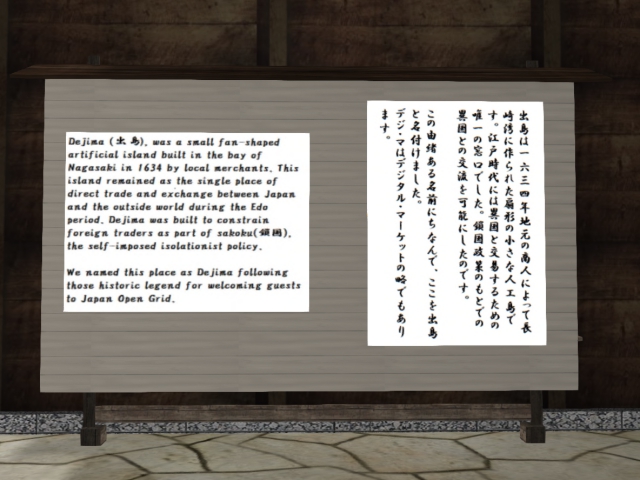 Dejima (出島), was a small fan-shaped
artificial island built in the bay of
Nagasaki in 1634 by local merchants. This
island remained as the single place of
direct trade and exchange between Japan
and the outside world during the Edo
period. Dejima was built to constrain
foreign traders as part of sakoku(鎖国),
the self-imposed isolationist policy.
We named this place as Dejima following
those historic legend for welcoming guests
to Japan Open Grid.
出島は一六三四年地元の商人によって長
崎湾に作られた扇形の小さな人工島で
す。江戸時代には異国と交易するための
唯一の窓口でした。鎖国政策のもとでの
異国との交流を可能にしたのです。
この由緒ある名前にちなんで、ここを出島
と名付けました。
デジ・マはデジタル・マーケットの略でもあり
ます。